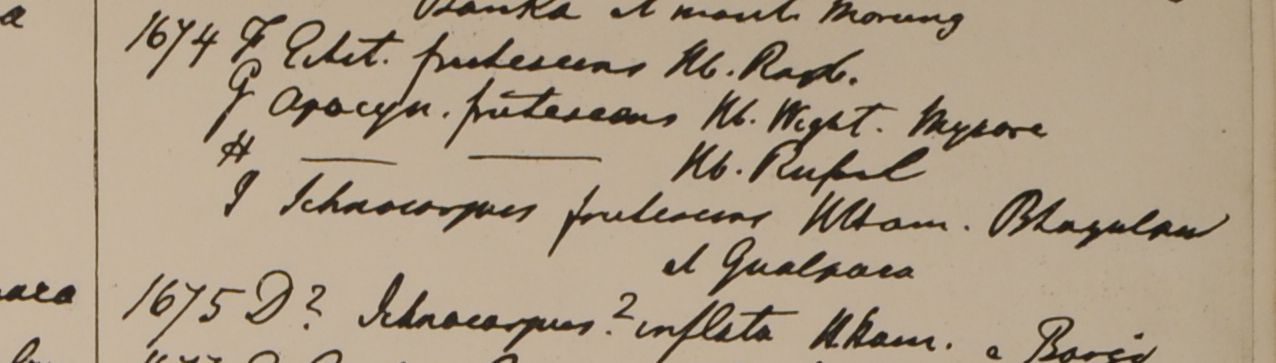 a
Banka et mont. Morung
1674 F Echit. frutescens Hb. Roxb.
G Apocyn. frutescens Hb. Wight. Mysore
H — — Hb. Russel
I Ichnocarpus frutescens HHam. Bhagulpur
et Gualpara
1675 D? Ichnocarpus? inflata HHam. e